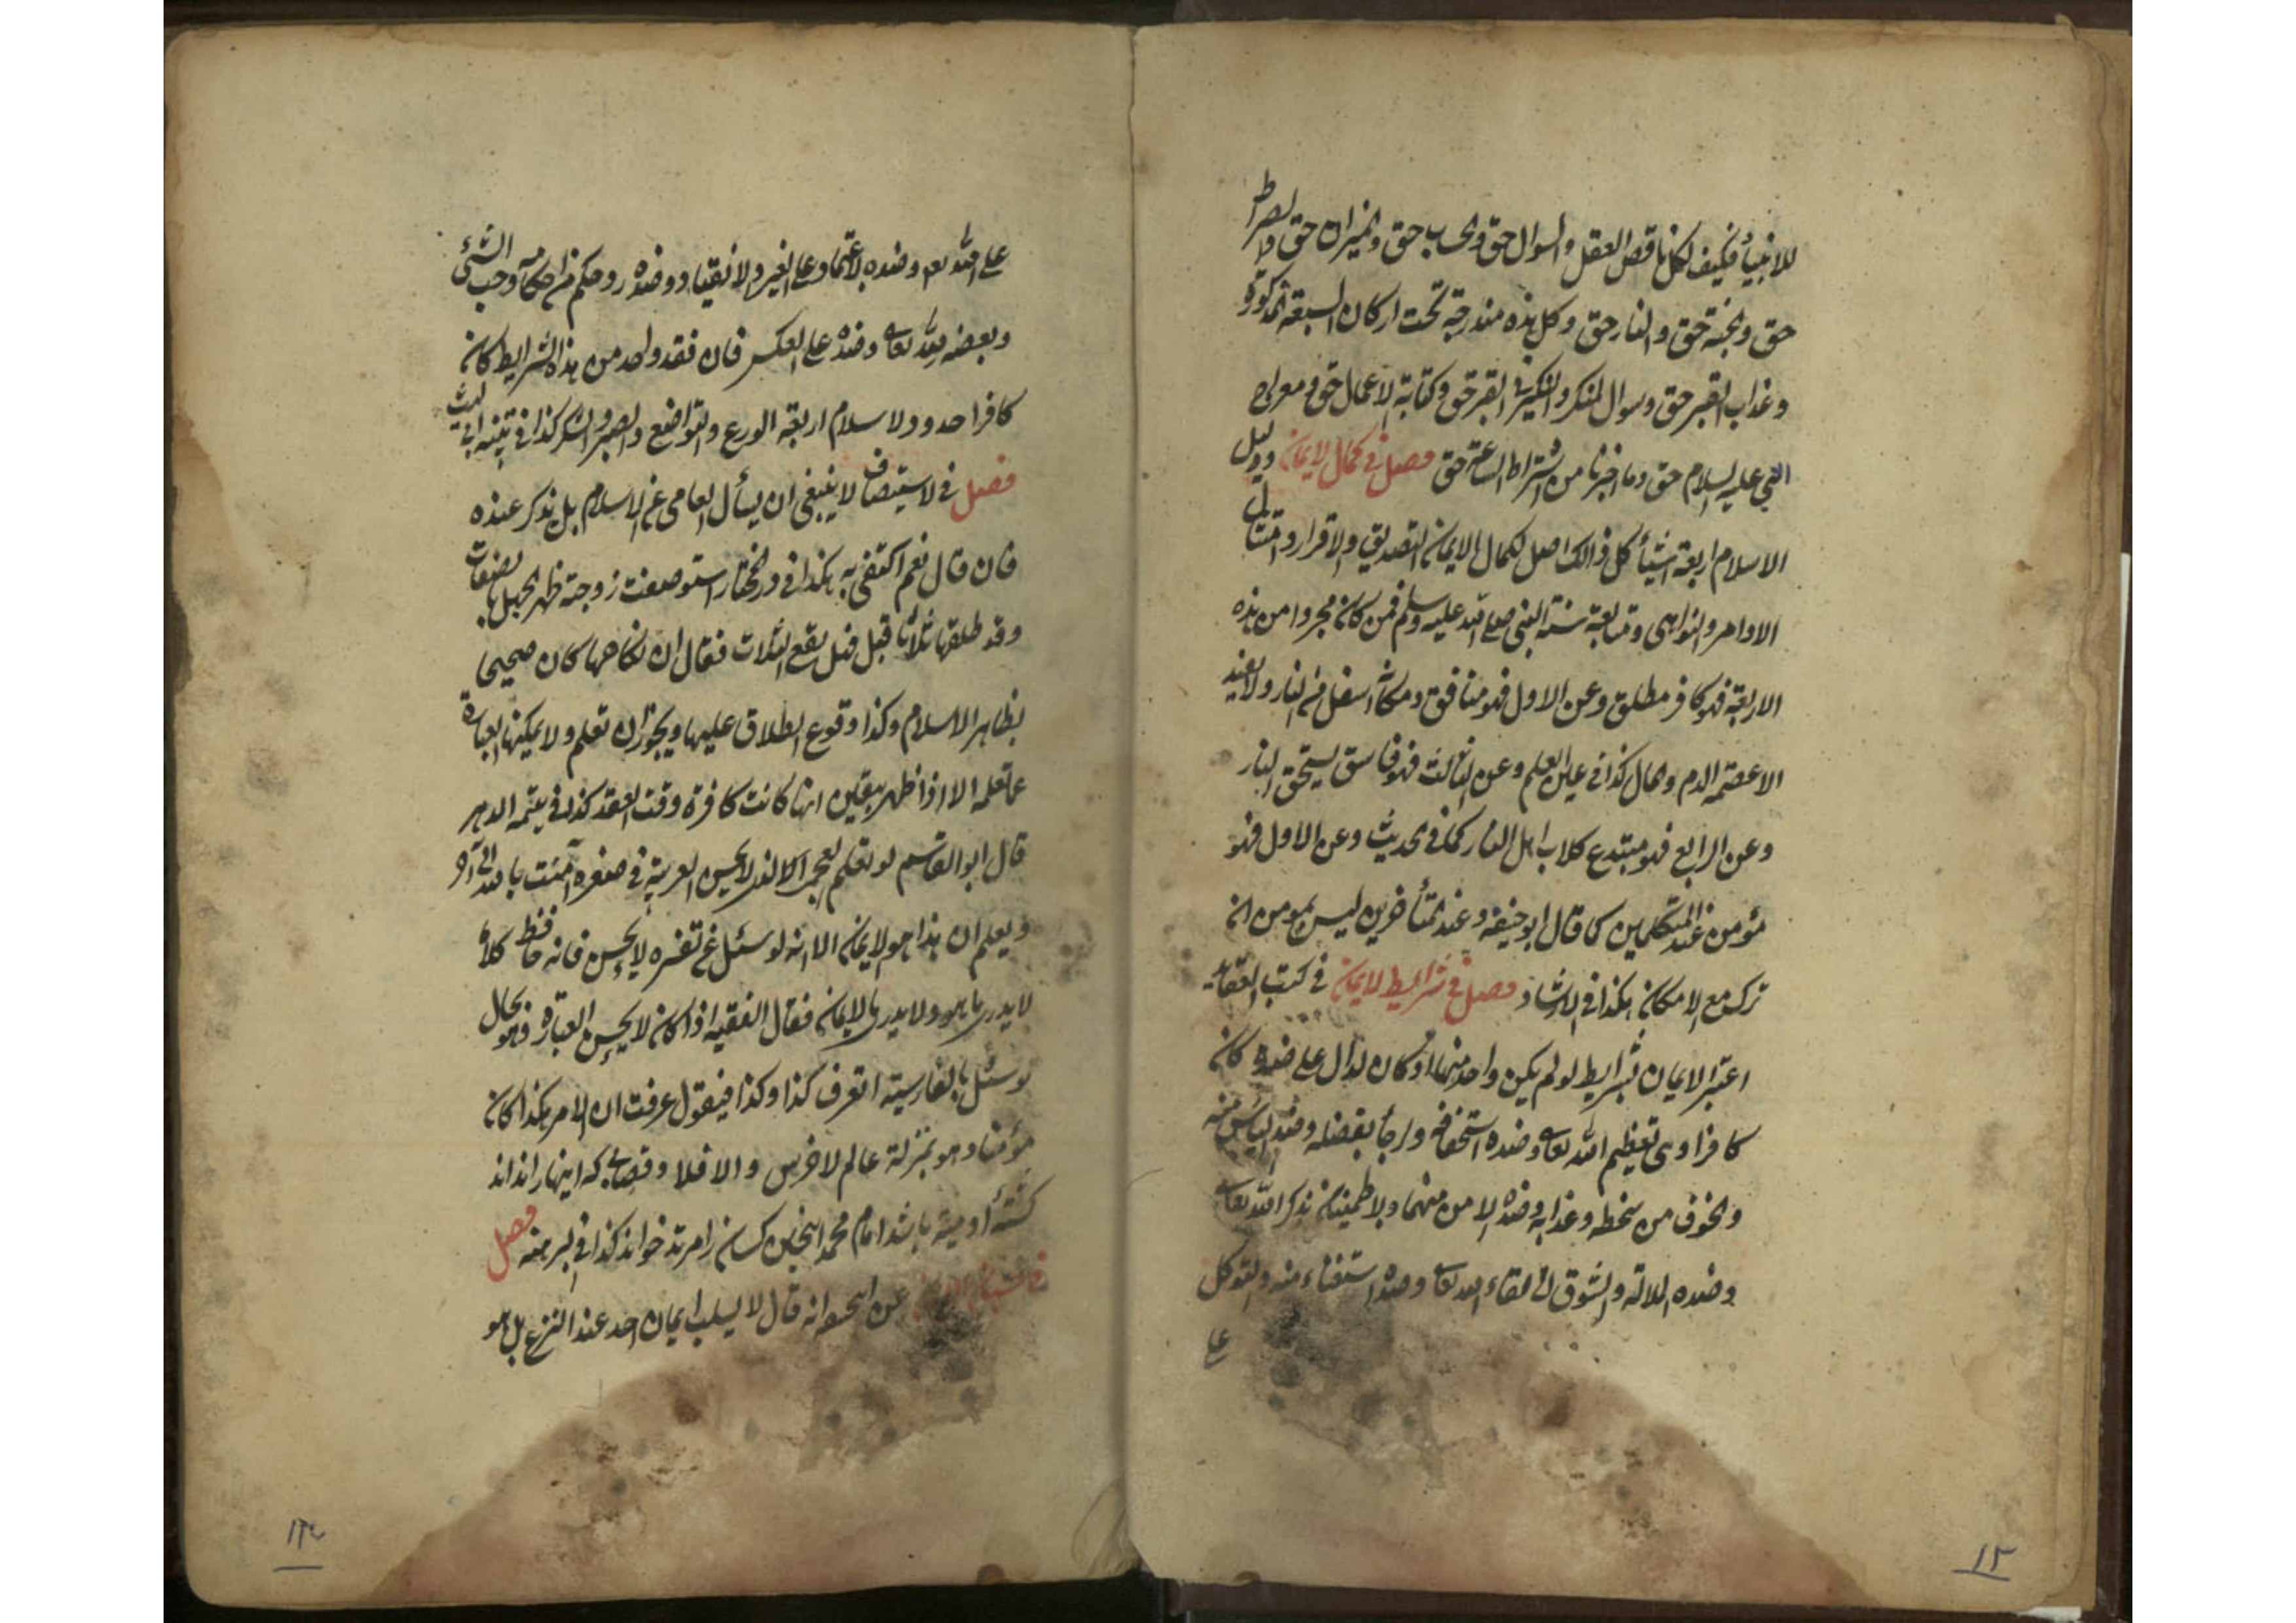 للانبياء فكيف لكل ناقص العقل والسوال حق والحساب حق والميزان حق والصراط
حق والجنة حق والنار حق وكل هذه مندرجة تحت اركان السبعة المذكورة
وعذاب القبر حق وسوال المنكر والنكير في القبر حق وكتابة الاعمال حق ومعراج
النبي عليه السلام حق وما اخبرنا من اشتراط الساعة حق فصل في كمال الايمان ودليل
الاسلام اربعة اشياء كل ذالك اصل لكمال الايمان التصديق والاقرار وامتثال
الاوامر والنواهي ومتابعة سنة النبي صلى الله عليه وسلم فمن كان مجردا من هذه
الاربعة فهو كافر مطلق وعن الاول فهو منافق ومكانه اسفل من النار ولا يفيد
الا عصمة الدم والمال كذا في عين العلم وعن الثالث فهو فاسق يستحق النار
وعن الرابع فهو مبتدع كلاب اهل النار كما في الحديث وعن الاول فهو
مؤمن عند المتكلمين كما قال ابو حنيفه وعند المتأخرين ليس بمومن ان
ترك مع الامكان هكذا في الارشاد فصل في شرايط الايمان في كتب العقايد
اعتبر الايمان بشرايط لو لم يكن واحد منها او كان لدال على ضده كان
كافرا وهي تعظيم الله تعالى وضده استخفافه ورجأ بفضله وضده اليأس منه
والخوف من سخطه وعذابه وضده الامن منهما والاطمينان بذكر الله تعالى
وضده الملالة والشوق الى لقاء الله تعالى وضده استغناء منه والتوكل
على
على الله تعالى وضده الاعتماد على الغير والانقياد وضده رد حكم من احكامه وحب الشئ
وبعضه لله تعالى وضده على العكس فان فقد واحد من هذه الشرايط كان
كافرا حدود الاسلام اربعة الورع والتواضع والصبر والشكر كذا في تنبيه ابي ليث
فصل في الاستيصاف لا ينبغي ان يسأل العامي عن الاسلام بل يذكر عنده
فان قال نعم اكتفى به هكذا في در المختار استوصفت زوجته ظهر الجهل بالصفات
وقد طلقها ثلاثا قبل هل يقع الثلاث فقال ان نكاحها كان صحيحا
بظاهر الاسلام وكذا وقوع الطلاق عليها ويجوز ان تعلم ولا يمكنها العبارة
عما تعلمه الا اذا ظهر بيقين انها كانت كافرة وقت العقد كذا في يتيمة الدهر
قال ابو القاسم لو تعلم العجمي الذي لا يحسن العربية في صغره آمنت بالله الى آخره
ويعلم ان هذا هو الايمان الا انه لو سئل عن تفسيره لا يحسن فانه حافظ كلاما
لا يدري ما هو ولا يدري ما الايمان فقال الفقيه اذا كان لا يحسن العبارة فهو بحال
لو سئل بالفارسية اتعرف كذا وكذا فيقول عرفت ان الامر هكذا كان
مؤمنا وهو بمنزلة عالم الاخرس والا فلا وقصابى كه اينها را نداند
كشته او ميتة باشد امام محمد اينچنين كسان را مرتد خواند كذا في البرهنه فصل
عن انه قال لا يسلب ايمان احد عند النزع بل هو
١٢
١٣